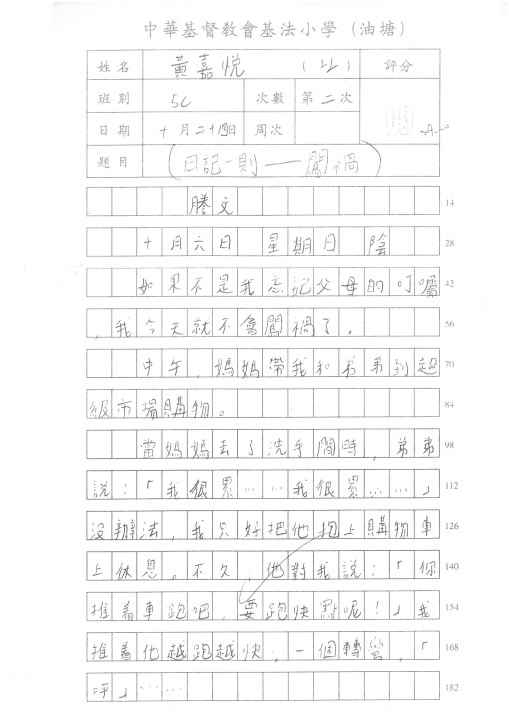 中華基督教會基法小學（油塘）
姓名 黃嘉悅 (22) 評分
班別 5C 次數 第二次
日期 十月二十四日 周次 A-
題目 (日記一則——闖禍)
謄文 14
十月六日 星期日 陰 28
如果不是我忘記父母的叮囑 42
，我今天就不會闖禍了。 56
中午，媽媽帶我和弟弟到超 70
級市場購物。 84
當媽媽去了洗手間時，弟弟 98
說：「我很累……我很累……」 112
沒辦法，我只好把他抱上購物車 126
上休息，不久，他對我說：「你 140
推着車跑吧，要跑快點呢！」我 154
推着他越跑越快，一個轉彎，「 168
呯」…… 182